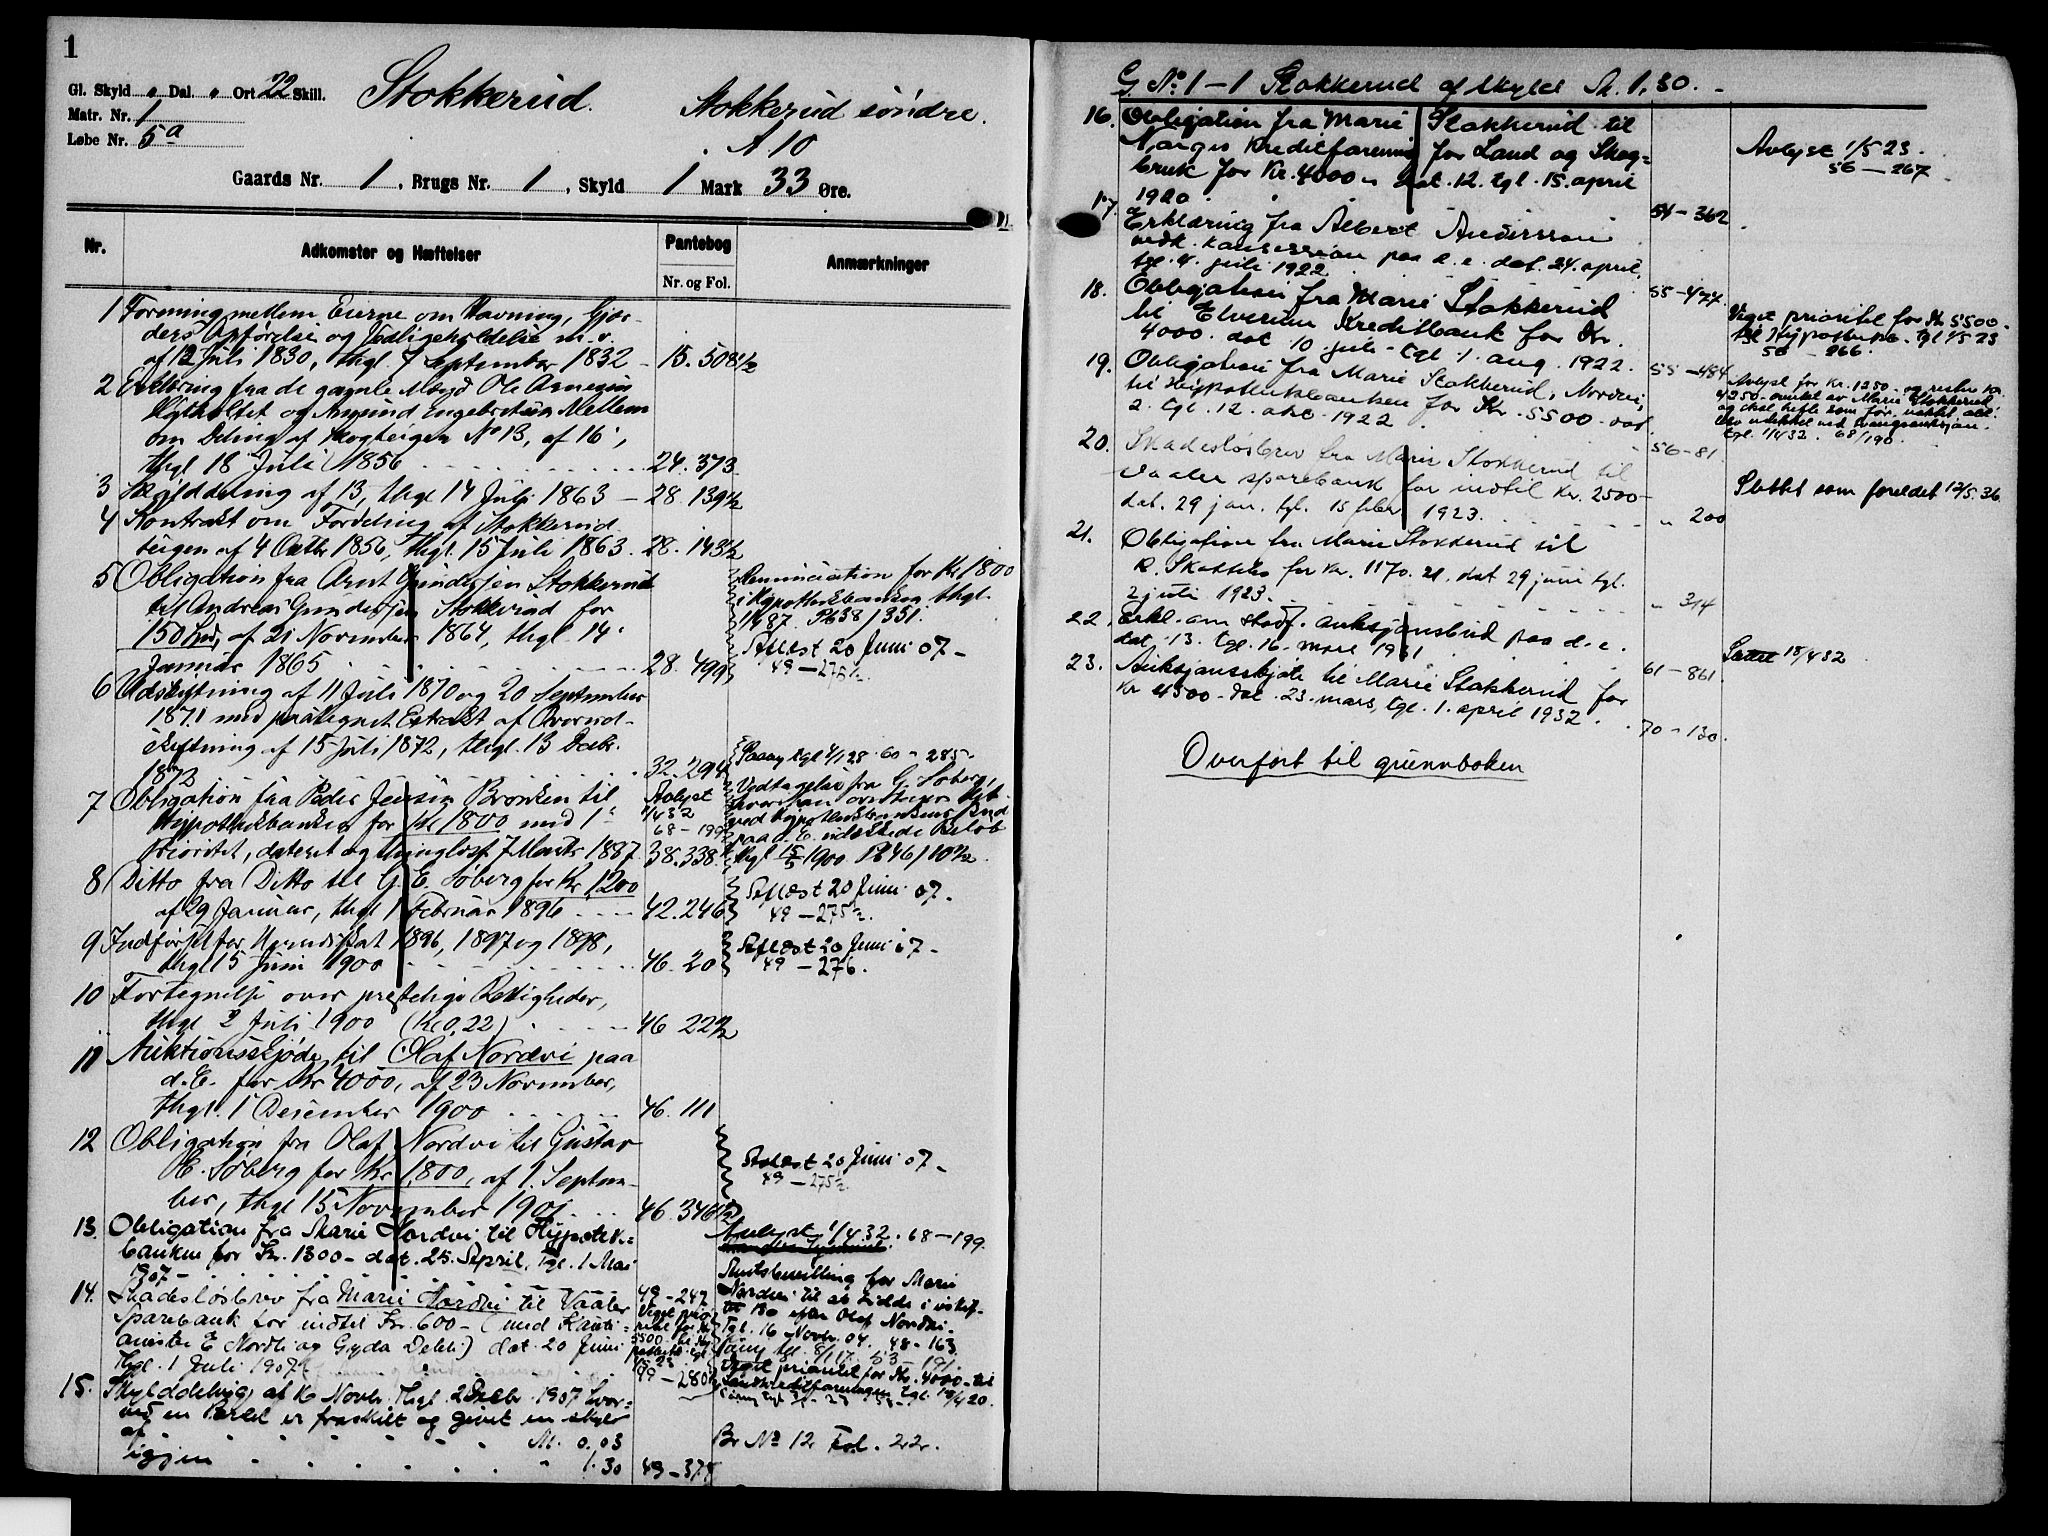 1
Gl. Skyld „ Dal. „ Ort 22 Skill.
Matr. Nr. 1
Løbe Nr. 5a
Stokkerud.
Stokkerud søndre.
A 10
Gaards Nr. 1, Brugs Nr. 1, Skyld 1 Mark 33 Øre.
Nr.
Adkomster og Hæftelser
Pantebog
Nr. og Fol.
Anmærkninger
1 Forening mellem Eierne om Havning, Gjær-
ders Opførelse og Vedligeholdelse m. v.
af 12 Juli 1830, thgl. 7 September 1832 – 15. 508½
2 Erklæring fra de gamle Mænd Ole Arnesen
og Amund Engebretsen Mellem
om Deling af Skogteigen No 13, af 16,
thgl 18 Juli 1856 24. 373
3 Skylddeling af 13, thgl 14 Juli 1863 – 28. 139½
4 Kontrakt om Fordeling af Stokkerud
teigen af 4 Octbr 1856, thgl. 15 Juli 1863. 28. 143½
5 Obligation fra Arnt Gundersen Stokkerud
til Andreas Gundersen Stokkerud for
150 Spd, af 21 November 1864, thgl. 14
Januar 1865 28. 499
Renunciation for Kr 1800
i Hypothekbanken thgl.
Pb 38/351.
Aflæst 20 Juni 07 –
49 – 275½.
6 Udskiftning af 11 Juli 1870 og 20 September
1871 med paategnet Extrakt af Overud-
skiftning af 15 Juli 1872, thgl. 13 Decbr.
1872 32. 294
7 Obligation fra Peder Jensen Bronken til
Hypothekbanken for Kr 1800 med 1
Prioritet, dateret og thinglæst 7 Marts 1887 38. 338
Avlyst
1/4 32
68 – 199
Paaany tgl 4/1 28. 60 – 285.
Vedtagelse fra G. Søberg,
ved Hypothekbankens
paa d. E. udestaaende Beløb
thgl 15/5 1900 Pb 46/10½.
8 Ditto fra Ditto til G. E. Søberg for Kr 1200
af 29 Januar, thgl 1 Februar 1896 42. 246
Aflæst 20 Juni 07 –
49 – 275½.
9 Indførsel for Mandskat 1896, 1897 og 1898,
thgl 15 Juni 1900 46. 20
Aflæst 20 Juni 07 –
49 – 276.
10 Fortegnelse over præstelige Rettigheder,
thgl 2 Juli 1900 (Kr 0,22) 46 22½
11 Auktionsskjøde til Olaf Nordvi paa
d. E. for Kr 4000, af 23 November,
thgl. 1 Desember 1900 46. 111
12 Obligation fra Olaf Nordvi til Gustav
E. Søberg for Kr 1,800, af 1. Septem-
ber, thgl 15 November 1901 46. 346½
Aflæst 20 Juni 07 –
49 – 275½.
13. Obligation fra Marie Nordvi til Hypotek-
banken for Kr. 1300 – dat. 25. April, Tgl. 1 Mai
1907 49 – 247
Avlyst 1/4 32. 68 – 199.
14. Skadesløsbrev fra Marie Nordvi til Vaaler
Sparebank for indtil Kr. 600 – (med Kauti-
onister E Nordli og Gyda Dehli) dat. 20 Juni
Thgl. 1 Juli 1907 49 – 280½
Amtsbevilling for Marie
Nordvi til at sidde i uskif-
tet Bo efter Olaf Nordvi.
Tgl. 16 Novbr. 04. 48 – 163
Paany tgl. 8/1 17. 53 – 191.
Veget prioritet for Kr. 4000 – til
Landkreditforeningen tgl. 15/4 20.
15. Skylddeling af 16 Novbr. Thgl. 2 Decbr. 1907 hvor-
ved en Parcel er fraskilt og givet en skyld
af M. 0.03
igjen „ 1.30 49 – 378
Br No 12 Fol. 22.
G. No 1 – 1 Stokkerud af skyld M. 1,30. –
16. Obligation fra Marie Stokkerud til
Norges Kreditforening for Land og Skog-
bruk for Kr. 4000 – dat. 12. tgl. 15. april
1920 54 – 362
Avlyst 1/5 23.
56 – 267
17. Erklæring fra Albert Andersson
vedk. konsession paa d. e. dat. 24. april,
tgl. 4. juli 1922 55 – 477.
18. Obligation fra Marie Stokkerud
til Elverum Kreditbank for Kr.
4000. dat 10 juli – tgl 1. aug. 1922. 55 – 484
Veget prioritet for Kr 5500 –
til Hypotekbk. tgl 1/5 23
56 – 266.
19. Obligation fra Marie Stokkerud, Nordvi,
til Hypotekbanken for Kr. 5500 – dat.
2. tgl. 12. okt. 1922 56 – 81
Avlyst for Kr. 1250 – og resten Kr.
4250 – av Marie Stokkerud
tvangsauksjon.
tgl. 1/4 32. 68/190.
20. Skadesløsbrev fra Marie Stokkerud til
Vaaler sparebank for indtil kr. 2500 –
dat. 29 jan. tgl. 15 febr 1923. „ 200
Slettet som foreldet 12/5. 36
21. Obligation fra Marie Stokkerud til
R. Skatteko for kr. 1170. 21, dat 29 juni tgl.
2 juli 1923. „ 314
22. Erkl. om stadf. auksjonsbud paa d. e.
dat. 13. tgl. 16. mars 1931 61 – 861
Slettet 18/4 32
23. Auksjonsskjøte til Marie Stokkerud for
Kr 4500 – dat. 23. mars, tgl. 1. april 1932. 70 – 130.
Overført til grunnboken